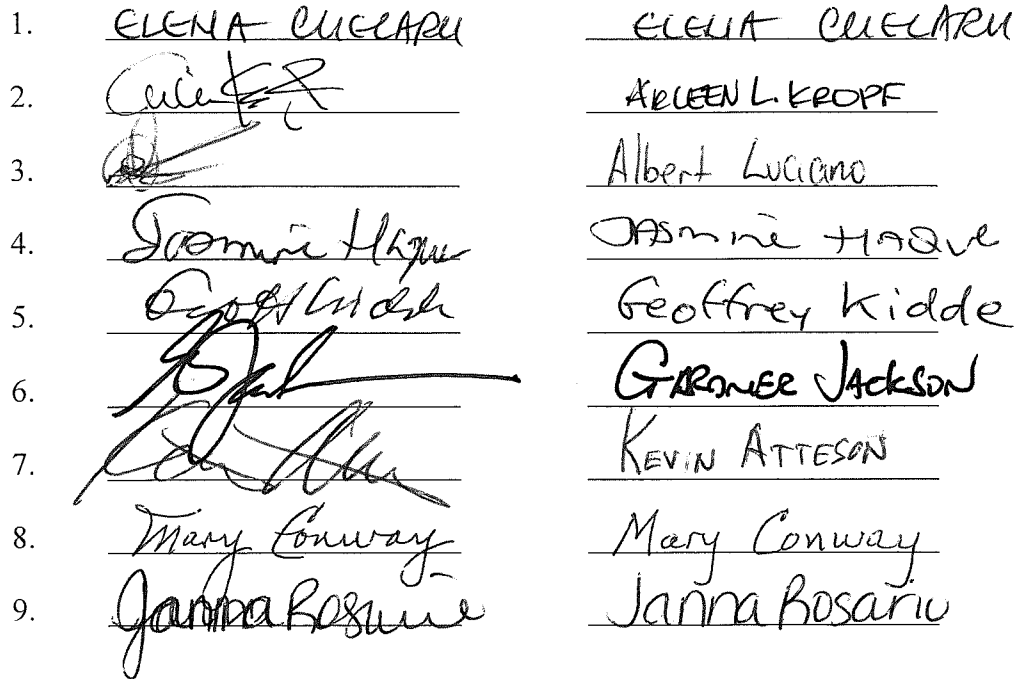 1. ELENA CHELARU ELENA CHELARU
2. ARLEEN L. KROPF
3. Albert Luciano
4. Jasmine Haque JASMINE HAQUE
5. Geoffrey Kidde
6. GARDNER JACKSON
7. KEVIN ATTESON
8. Mary Conway Mary Conway
9. Janna Rosario Janna Rosario